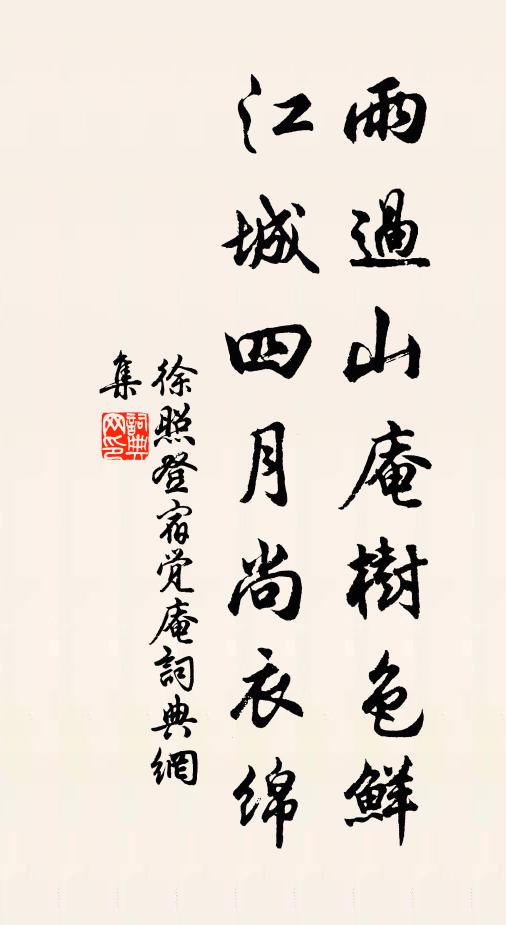 雨過山庵樹色鮮
江城四月尚衣綿
徐照登宿觉庵詞典網
集
詞典网印